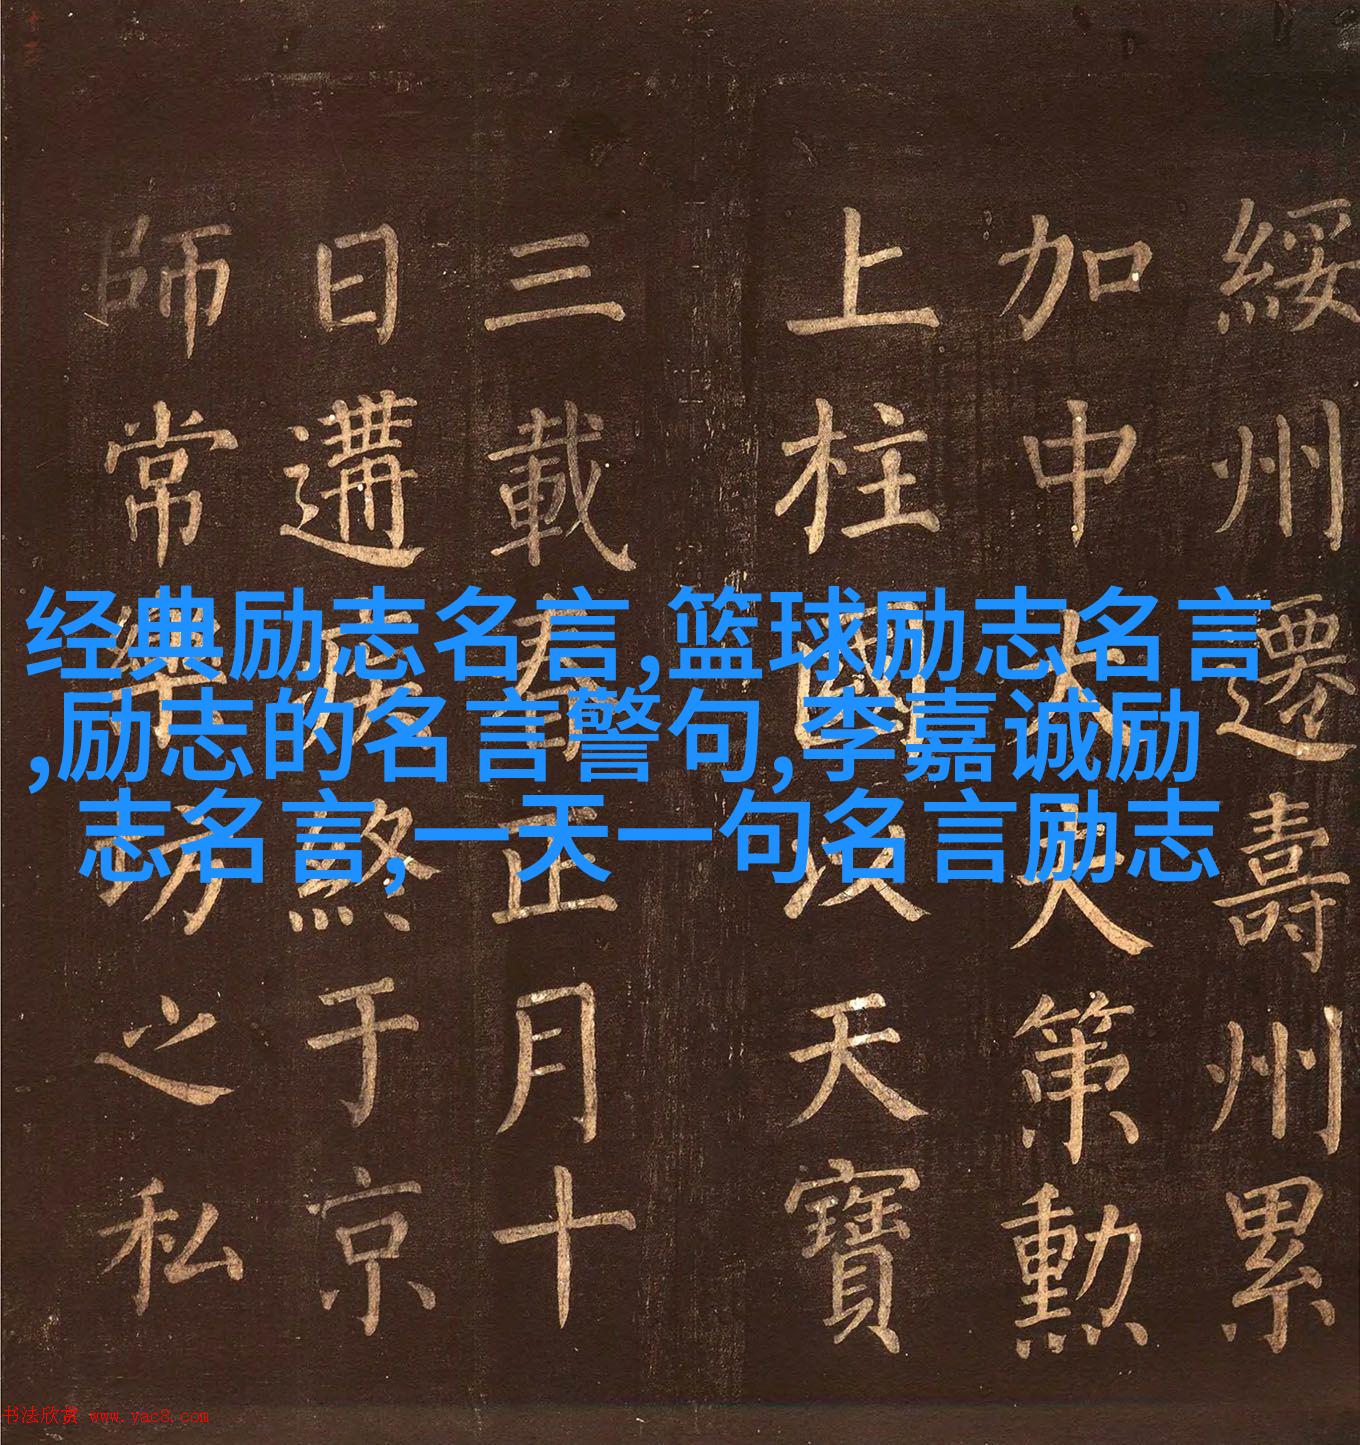 綏州遷壽州累
加中大夫策勳
上柱國以天寶
三載春正月十
日遘疾終于京
師常樂坊之私
经典励志名言,篮球励志名言
,励志的名言警句,李嘉诚励
志名言,一天一句名言励志
书法欣赏 www.yac8.com